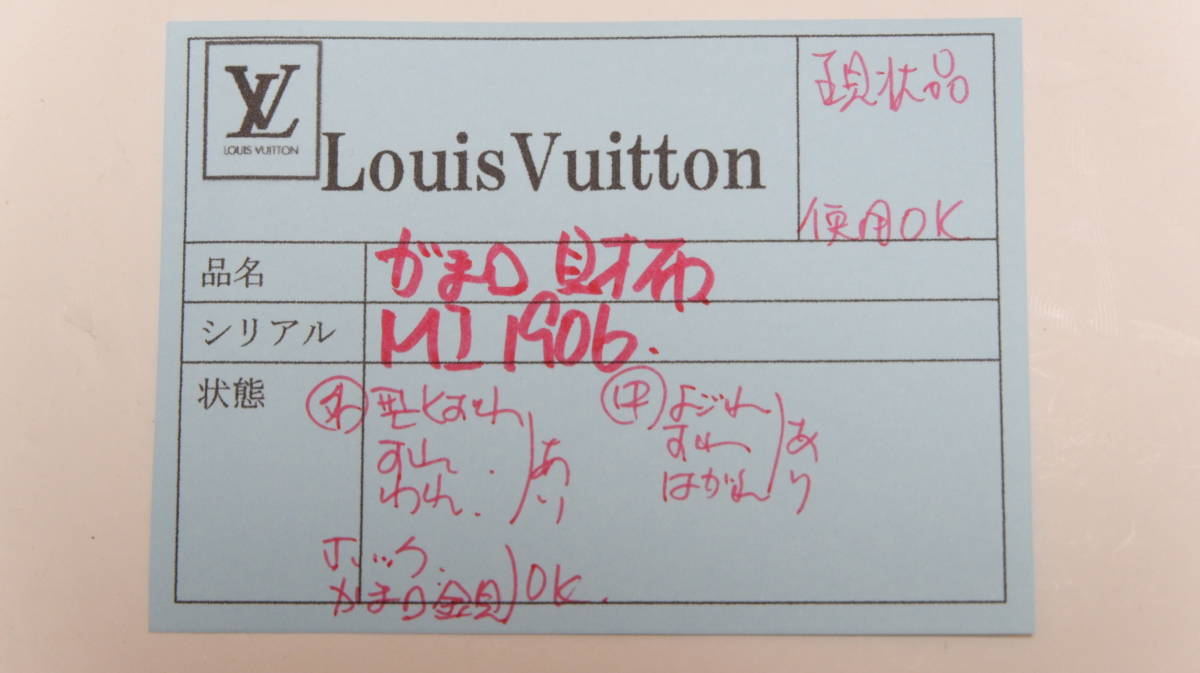 LV
LOUIS VUITTON
Louis Vuitton
現状品
使用OK
品名 がま口 財布
シリアル MI1906.
状態
外 型くずれ
すれ.
われ.
あり
中 よごれ
すれ
はがれ
あり
ホック.
がま口金具
OK.